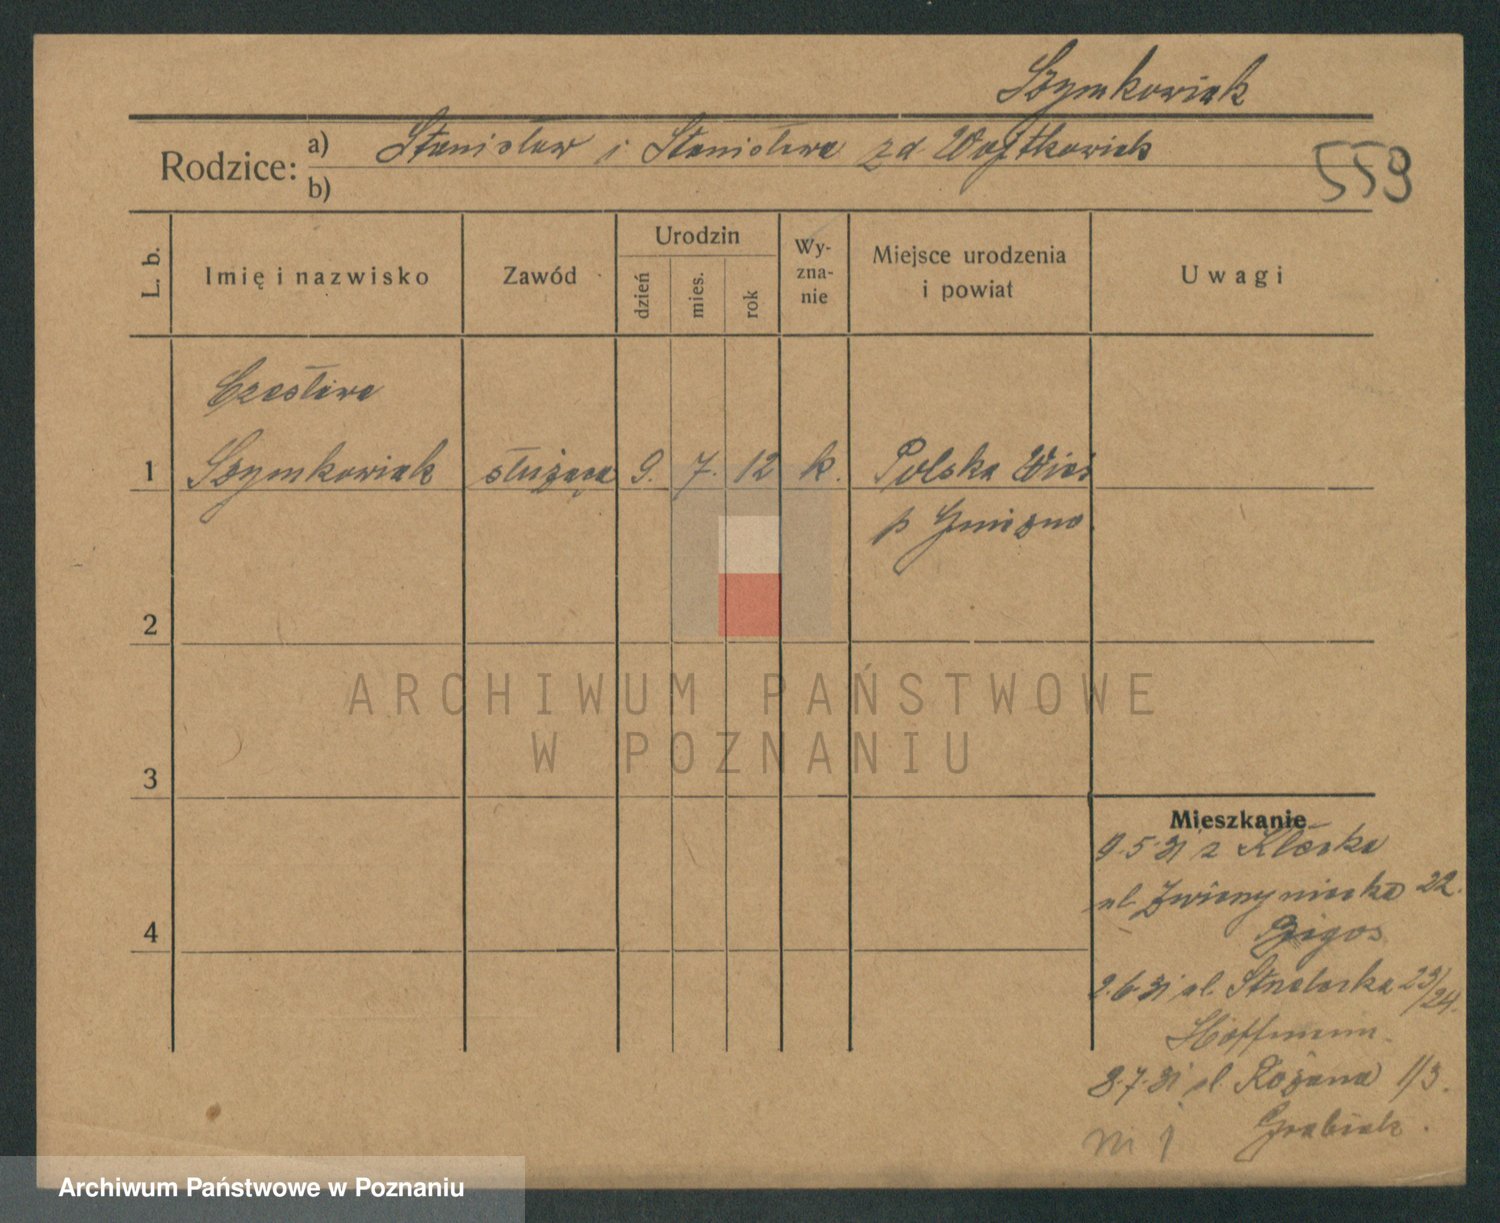 Szymkowiak
Rodzice: a) Stanisław i Stanisława zd Wojtkowiak
b)
559
L. b.
Imię i nazwisko
Zawód
Urodzin
dzień
mies.
rok
Wy-
zna-
nie
Miejsce urodzenia
i powiat
Uwagi
Czesława
1 Szymkowiak służąca 9. 7. 12 k. Polska Wieś
p Gniezno.
2
3
4
ARCHIWUM PAŃSTWOWE
W POZNANIU
Mieszkanie
9.5.31 z Kłecka
ul. Zwierzyniecka 22.
Bigos
2.6.31 ul. Strzelecka 23/24.
Hoffmann.
8.7.31 ul Różana 1/3.
Grabiak.
Archiwum Państwowe w Poznaniu